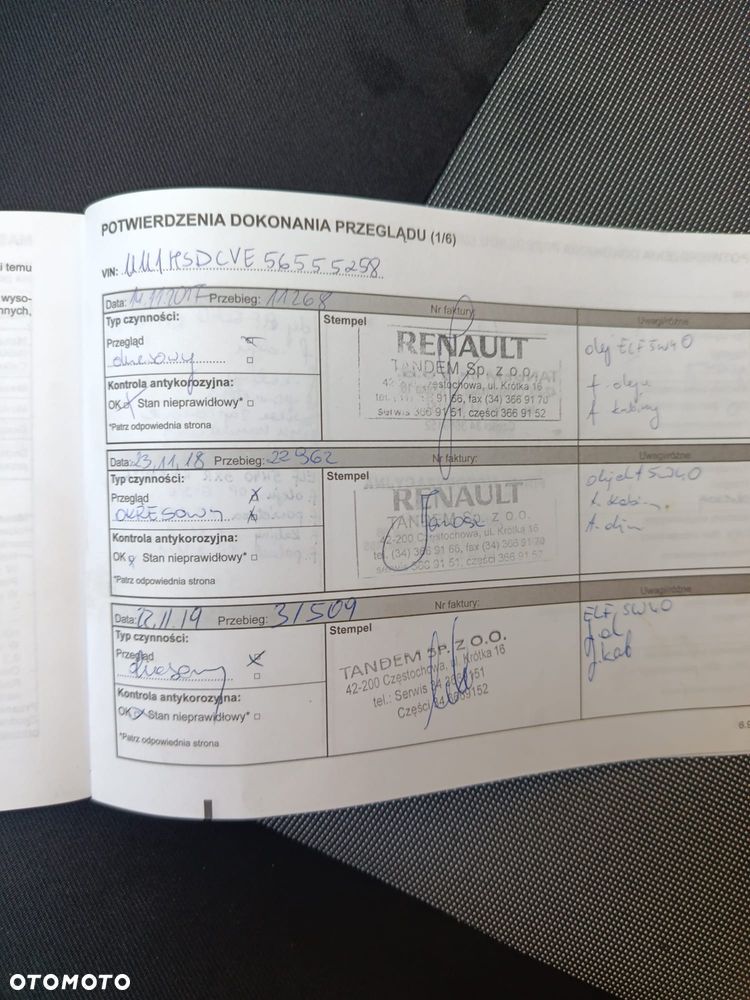 i temu
wyso-
nnych,
POTWIERDZENIA DOKONANIA PRZEGLĄDU (1/6)
VIN: UU1HSDCVE 56555298
Data: 14.11.2017 Przebieg: 11268 Nr faktury:
Typ czynności:
Stempel
Uwagi/różne
Przegląd
okresowy
Kontrola antykorozyjna:
OK Stan nieprawidłowy*
*Patrz odpowiednia strona
RENAULT
TANDEM Sp. z o.o.
42-200 Częstochowa, ul. Krótka 16
tel. 366 91 66, fax (34) 366 91 70
Serwis 366 91 51, części 366 91 52
olej ELF 5W40
f. oleju
f. kabiny
Data: 23.11.18 Przebieg: 22962 Nr faktury:
Typ czynności:
Stempel
Uwagi/różne
Przegląd
OKRESOWY
Kontrola antykorozyjna:
OK Stan nieprawidłowy*
*Patrz odpowiednia strona
RENAULT
TANDEM Sp. z o.o.
42-200 Częstochowa, ul. Krótka 16
tel. (34) 366 91 66, fax (34) 366 91 70
serwis 366 91 51, części 366 91 52
5W40
Data: 22.11.19 Przebieg: 31509 Nr faktury:
Typ czynności:
Stempel
Uwagi/różne
Przegląd
okresowy
Kontrola antykorozyjna:
OK Stan nieprawidłowy*
*Patrz odpowiednia strona
TANDEM SP. Z O.O.
42-200 Częstochowa, ul. Krótka 16
tel.: Serwis 34 3669151
Części 34 3669152
ELF 5W40
f. ol
f. kab
OTOMOTO